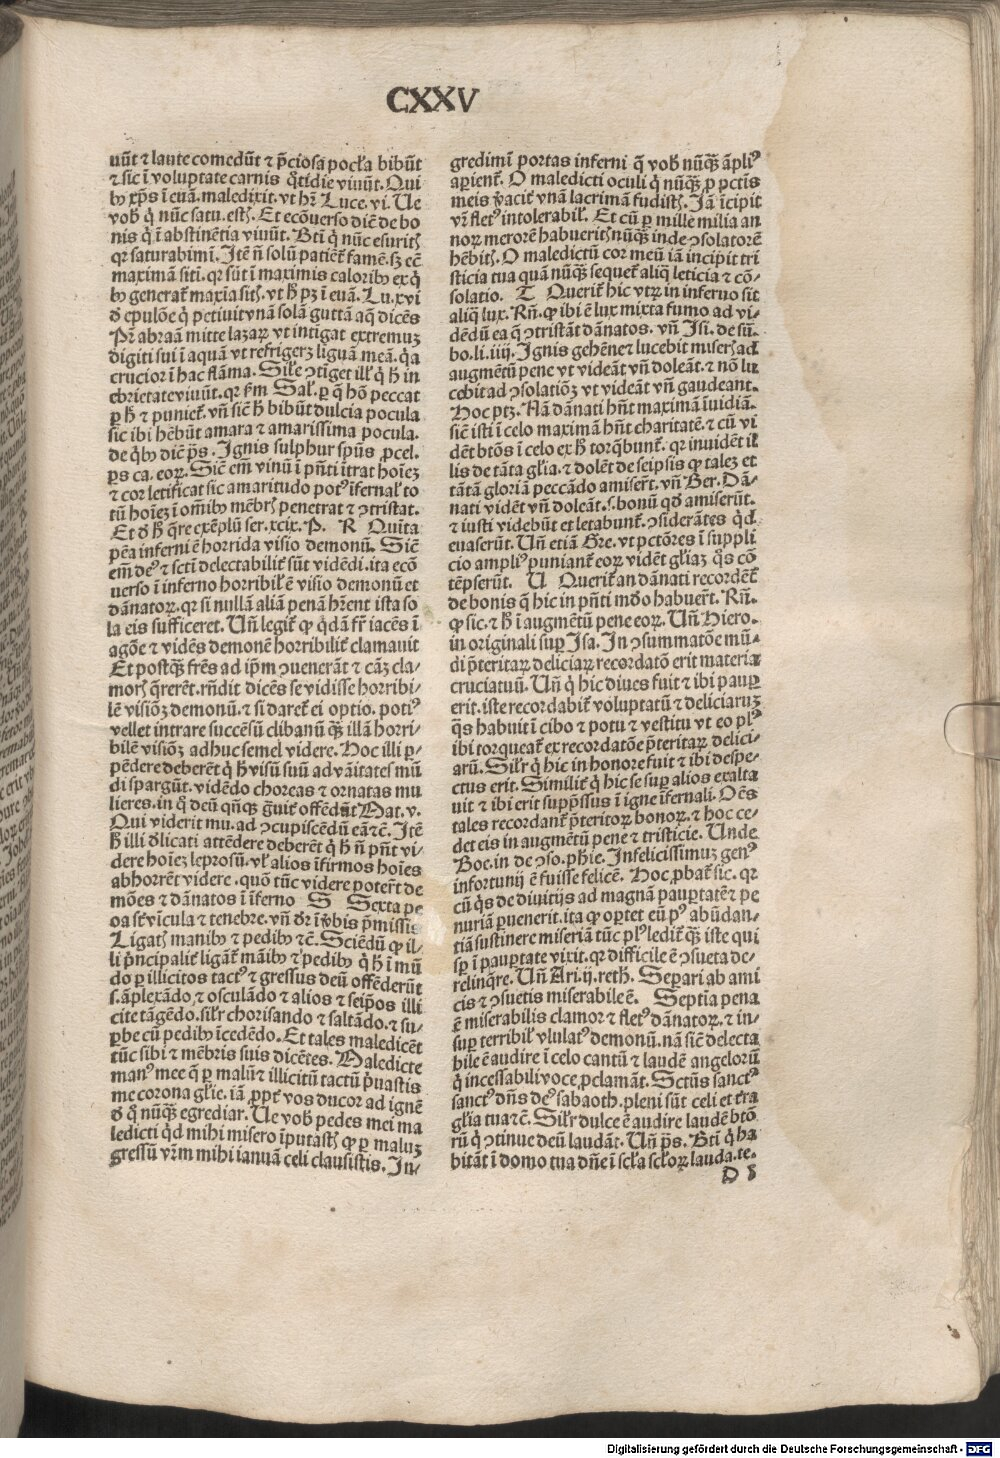 CXXV
uūt ⁊ laute comedūt ⁊ p̄ciosa pocl̄a bibūt
⁊ sic ī voluptate carnis q̇tidie viuūt. Qui
bꝰ xp̄s ī euā. maledixit. vt hr̄ Luce. vi. Ue
vob̄ q̇ nūc satu. estꝭ. Et ecōuerso diē de bo
nis q̇ ī abstinētia viuūt. Bt̄i q̇ nūc esuritꝭ
qꝛ saturabimī. Itē n̄ solū patiēt̄ famē. sꝫ eē
maximā sitī. qꝛ sūt ī maximis caloribꝰ ex q̇
bꝰ generat̄ maxīa sitꝭ. vt h̄ pꝫ ī euā. Lu. xvi
đ epulōe q̇ petiuit vnā solā guttā aq̄ dicēs
Pr̄ abraā mitte lazaꝝ vt intigat extremuꝫ
digiti sui ī aquā vt refrigerꝫ liguā meā. q̇a
crucior ī hac flāma. Sil̄e ↄtiget ill̄ q̇ h̄ in
ebrietate viuūt. qꝛ ẜm Sal. ꝑ q̄ hō peccat
ꝑ h̄ ⁊ puniet̄. vn̄ sic̄ h̄ bibūt dulcia pocula
sic ibi hēbūt amara ⁊ amarissima pocula.
de q̇bꝰ dic̄ pꝭ. Ignis sulphur spūs ꝓcel.
ꝑs ca. eoꝝ. Sic̄ em̄ vinū ī pn̄ti ītrat hoīeꝫ
⁊ cor letificat sic amaritudo potꝰ īfernal̄ to
tū hoīeꝫ ī om̄ibꝰ mēbrꝭ penetrat ⁊ ↄtristat.
Et đ h̄ q̄re exēplū ser. xcix. P. R Quīta
pēa inferni ē horrida visio demonū. Sic̄
em̄ deꝰ ⁊ scti delectabilit̄ sūt vidēdi. ita ecō
uerso ī inferno horribil̄ ē visio demonū et
dānatoꝝ. qꝛ si nullā aliā penā hr̄ent ista so
la eis sufficeret. Un̄ legit̄ ꝙ q̇dā fr̄ iacēs ī
agōe ⁊ vidēs demonē horribilit̄ clamauit
Et postq̄ꝫ frēs ad ip̄m ↄuenerāt ⁊ cāꝫ cla-
morꝭ q̄rerēt. rn̄dit dicēs se vidisse horribi-
lē visiōꝫ demonū. ⁊ si daret̄ ei optio. potiꝰ
vellet intrare succēsū clibanū q̄ꝫ illā horri-
bilē visiōꝫ adhuc semel videre. Hoc illi ꝑ-
pēdere deberēt q̇ h̄ visū suū ad vāitates mū
di spargūt. vidēdo choreas ⁊ ornatas mu
lieres. in q̇ deū qn̄qꝫ g̈uit̄ offēdūt Mat. v.
Qui viderit mu. ad ↄcupiscēdū eā ⁊c̄. Itē
h̄ illi đlicati attēdere deberēt q̇ h̄ n̄ pn̄t vi-
dere hoīeꝫ leprosū. vl̄ alios īfirmos hoīes
abhorrēt videre. quō tūc videre poterūt de
mōes ⁊ dānatos ī īferno S Sexta pe
oa st̄ vīcula ⁊ tenebre. vn̄ đr ī v̄bis p̄missis
Ligatꝭ manibꝰ ⁊ pedibꝰ ⁊c̄. Sciēdū ꝙ il-
li ṗncipalit̄ ligāt̄ māibꝰ ⁊ pedibꝰ q̇ h̄ ī mū
do ꝑ illicitos tactꝰ ⁊ gressus deū offēderūt
s. āplexādo ⁊ osculādo ⁊ alios ⁊ seip̄os illi
cite tāgēdo. sil̄r chorisando ⁊ saltādo. ⁊ su-
ꝑbe cū pedibꝰ īcedēdo. Et tales maledicēt
tūc sibi ⁊ mēbris suis dicētes. Maledicte
manꝰ mee q̄ ꝑ malū ⁊ illicitū tactū p̄uastis
me corona gl̄ie. iā ꝓpt̄ vos ducor ad ignē
đ q̇ nūq̄ꝫ egrediar. Ue vob̄ pedes mei ma
ledicti q̇d mihi misero īputastꝭ ꝙ ꝑ maluꝫ
gressū vr̄m mihi ianuā celi clausistis. In-
gredimī portas inferni q̄ vob̄ nūq̄ꝫ āpliꝰ
aꝑient̄. O maledicti oculi q̇ nūq̄ꝫ ꝓ pctīs
meis v̄acit̄ vnā lacrimā fudistꝭ. Iā īcipit
vr̄ fletꝰ intolerabil̄. Et cū ꝑ mille milia an
noꝝ merorē habueritꝭ nūq̄ꝫ inde ↄsolatorē
hēbitꝭ. O maledictū cor meū iā incipit tri
sticia tua quā nūq̄ꝫ sequet̄ aliq̄ leticia ⁊ cō-
solatio. T Querit̄ hic vtꝝ in inferno sit
aliq̄ lux. Rn̄. ꝙ ibi ē lux mixta fumo ad vi-
dēdū ea q̄ ↄtristāt dānatos. vn̄ Isi. de sū.
bo. li. iiij. Ignis gehēne ⁊ lucebit miserꝭ ad
augmētū pene vt videāt vn̄ doleāt. ⁊ nō lu
cebit ad ↄsolatiōꝫ vt videāt vn̄ gaudeant.
Hoc ptꝫ. Nā dānati hn̄t maximā īuidiā.
sic̄ isti ī celo maximā hn̄t charitatē. ⁊ cū vi
dēt btōs ī celo ex h̄ torq̄bunt̄. qꝛ inuidēt il
lis de tāta gl̄ia. ⁊ dolēt de seipsis ꝙ taleꝫ et
tātā gloriā peccādo amiserūt. vn̄ Ber. Dā-
nati vidēt vn̄ doleāt. s. bonū qđ amiserūt.
⁊ iusti videbūt et letabunt̄. ↄsiderātes q̇d
euaserūt. Un̄ etiā Gre. vt pctōres ī suppli
cio ampliꝰ puniant̄ eoꝝ vidēt gl̄iaꝫ q̇s cō
tēpserūt. U Querit̄ an dānati recordēt̄
de bonis q̄ hic in pn̄ti mđo habuerūt. Rn̄.
ꝙ sic. ⁊ h̄ ī augmētū pene eoꝝ. Un̄ Hiero.
in originali suꝑ Isa. In ↄsummatōe mū-
di p̄teritaꝝ deliciaꝝ recordatō erit materia
cruciatuū. Un̄ q̇ hic diues fuit ⁊ ibi pauꝑ
erit. iste recordabit̄ voluptatū ⁊ deliciaruꝫ
q̄s habuit ī cibo ⁊ potu ⁊ vestitu vt eo plꝰ
ibi torqueat̄ ex recordatōe p̄teritaꝝ delici-
arū. Sil̄r q̇ hic in honore fuit ⁊ ibi despe-
ctus erit. Similit̄ q̇ hic se suꝑ alios exalta
uit ⁊ ibi erit supp̄ssus ī igne īfernali. Oēs
tales recordant̄ p̄teritoꝝ bonoꝝ. ⁊ hoc ce-
det eis in augmētū pene ⁊ tristicie. Unde
Boe. in de ↄso. ph̄ie. Infelicissimuꝫ genꝰ
infortunij ē fuisse felicē. Hoc ꝓbat̄ sic. qꝛ
cū q̇s de diuitijs ad magnā pauꝑtatē ⁊ pe
nuriā ꝑuenerit. ita ꝙ oꝑtet eū pꝰ abūdan-
tiā sustinere miseriā tūc plꝰ ledit̄ q̄ꝫ iste qui
sꝑ ī pauꝑtate vixit. qꝛ difficile ē ↄsueta de-
relinq̄re. Un̄ Ari. ij. reth. Seꝑari ab ami
cis ⁊ ↄsuetis miserabile ē. Septīa pena
ē miserabilis clamor ⁊ fletꝰ dānatoꝝ. ⁊ in-
suꝑ terribil̄ vlulatꝰ demonū. nā sic̄ delecta
bile ē audire ī celo cantū ⁊ laudē angelorū
q̇ incessabili voce ꝓclamāt. Sctūs sanctꝰ
sanctꝰ dn̄s deꝰ sabaoth. pleni sūt celi et tr̄a
gl̄ia tua ⁊c̄. Sil̄r dulce ē audire laudē btō
rū q̇ ↄtinue deū laudāt. Un̄ pꝭ. Bt̄i q̇ ha
bitāt ī domo tua dn̄e ī scl̄a scl̄oꝝ lauda. te.
D 8
Digitalisierung gefördert durch die Deutsche Forschungsgemeinschaft - DFG